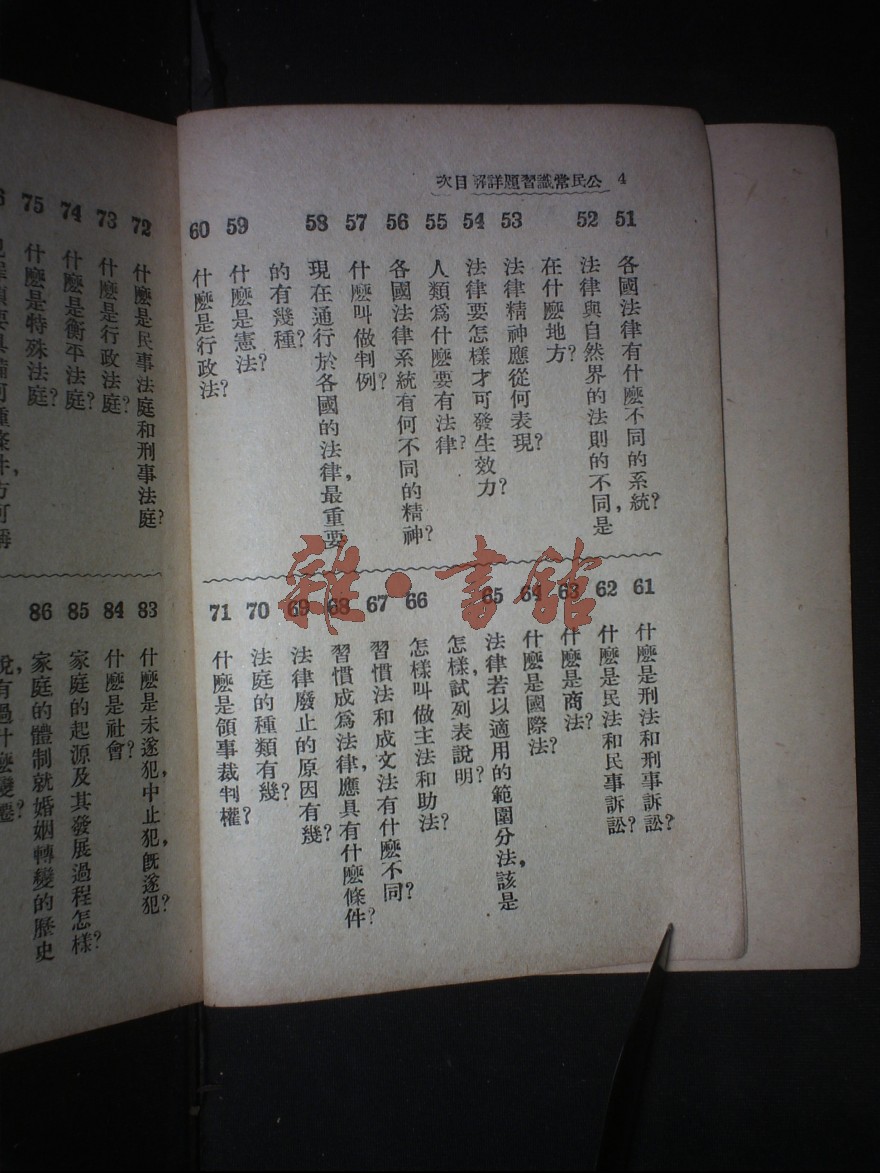 公民常識習題詳解 目次 4
51 各國法律有什麼不同的系統？
52 法律與自然界的法則的不同，是
在什麼地方？
53 法律精神應從何表現？
54 法律要怎樣才可發生效力？
55 人類爲什麼要有法律？
56 各國法律系統有何不同的精神？
57 什麼叫做判例？
58 現在通行於各國的法律，最重要
的有幾種？
59 什麼是憲法？
60 什麼是行政法？
61 什麼是刑法和刑事訴訟？
62 什麼是民法和民事訴訟？
63 什麼是商法？
64 什麼是國際法？
65 法律若以適用的範圍分法，該是
怎樣，試列表說明？
66 怎樣叫做主法和助法？
67 習慣法和成文法有什麼不同？
68 習慣成爲法律，應具有什麼條件？
69 法律廢止的原因有幾？
70 法庭的種類有幾？
71 什麼是領事裁判權？
72 什麼是民事法庭和刑事法庭？
73 什麼是行政法庭？
74 什麼是衡平法庭？
75 什麼是特殊法庭？
83 什麼是未遂犯，中止犯，既遂犯？
84 什麼是社會？
85 家庭的起源及其發展過程怎樣？
86 家庭的體制就婚姻轉變的歷史
雜·書館